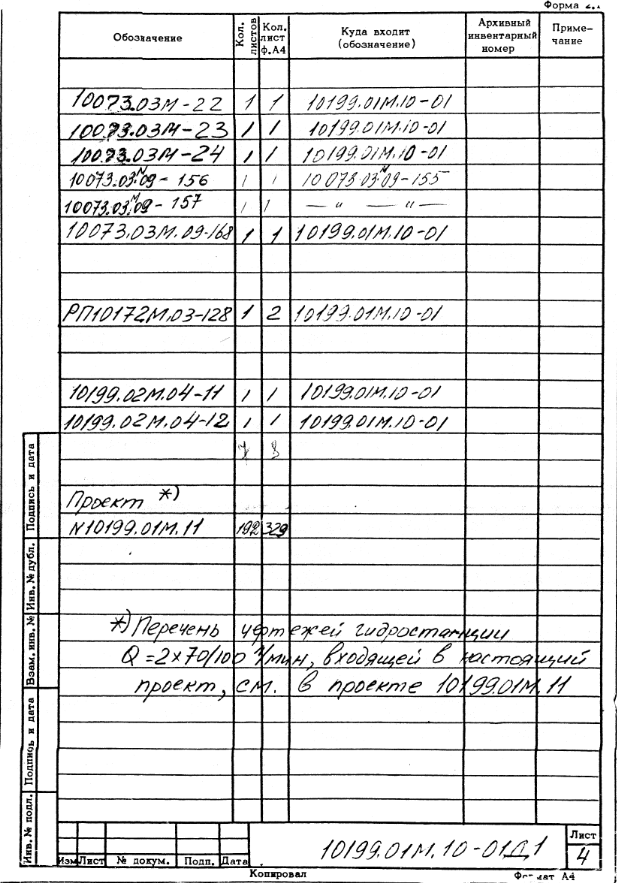 Форма 2.1
Обозначение Кол. листов Кол. лист ф.А4 Куда входит (обозначение) Архивный инвентарный номер Примечание
10073.03М-22 1 1 10199.01М.10-01
10073.03М-23 1 1 10199.01М.10-01
10073.03М-24 1 1 10199.01М.10-01
10073.03М.09-156 1 1 10073.03М.09-155
10073.03М.09-157 1 1 — " — " —
10073.03М.09-168 1 1 10199.01М.10-01
РП10172М.03-128 1 2 10199.01М.10-01
10199.02М.04-11 1 1 10199.01М.10-01
10199.02М.04-12 1 1 10199.01М.10-01
Проект *)
N10199.01М.11 192 329
*) Перечень чертежей гидростанции
Q=2×70/100 л/мин, входящей в настоящий
проект, см. в проекте 10199.01М.11
Инв. № подл. Подпись и дата Взам. инв. № Инв. № дубл. Подпись и дата
10199.01М.10-01Д1
Лист
4
Изм Лист № докум. Подп. Дата
Копировал Формат А4